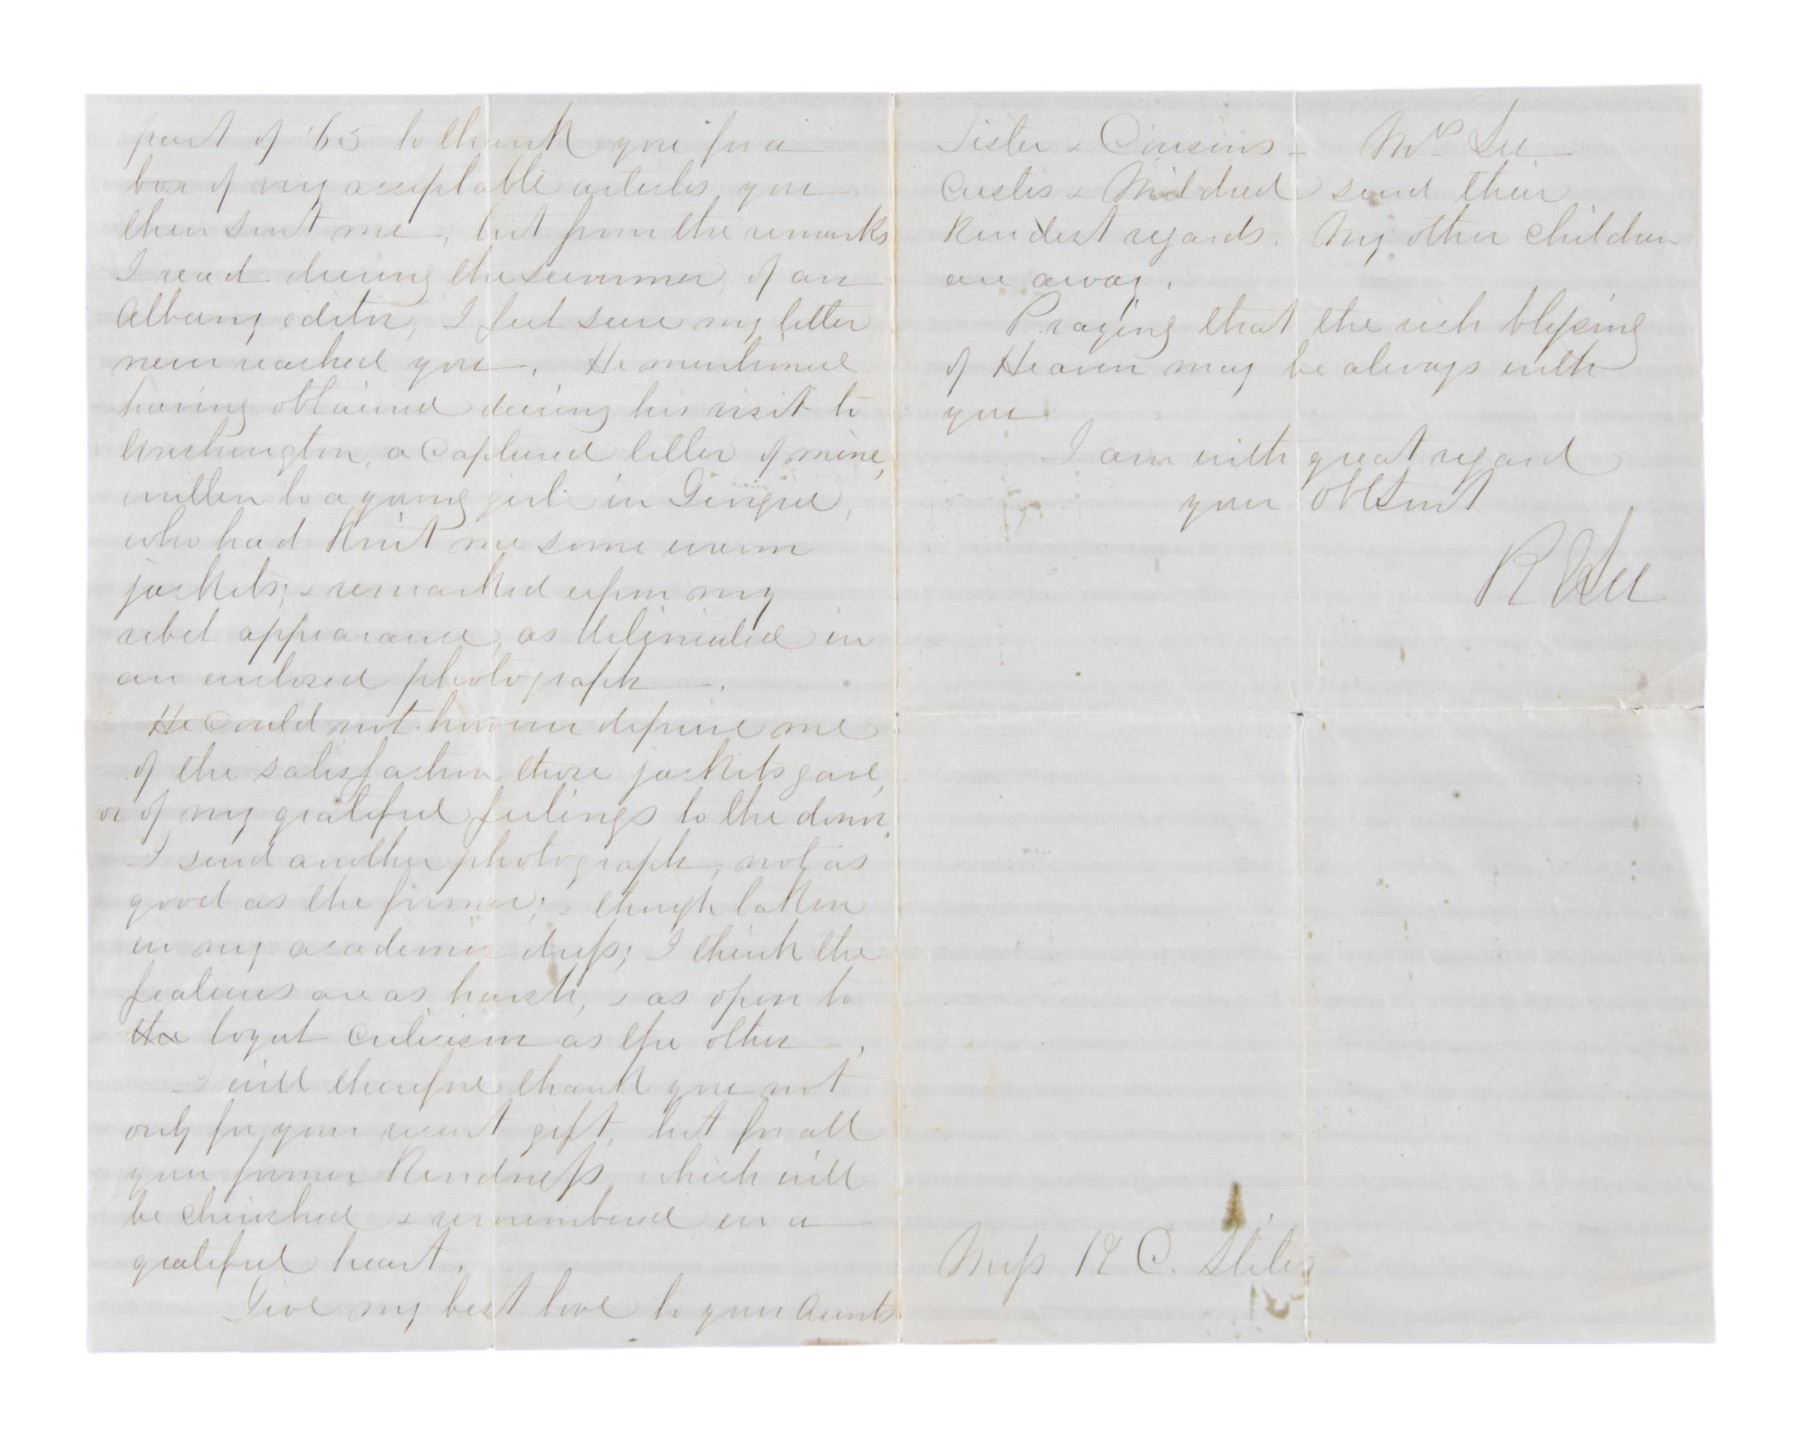 part of '65 to thank you for a
box of very acceptable articles you
then sent me, but from the remarks
I read during the summer, of an
Albany editor, I feel sure my letter
never reached you. He mentioned
having obtained during his visit to
Washington, a captured letter of mine,
written to a young girl in
who had knit me some warm
jackets; & remarked upon my
rebel appearance, as deliniated in
an enclosed photograph.
He could not however deprive me
of the satisfaction those jackets gave,
or of my grateful feelings to the donor.
I send another photograph, not as
good as the former; & though taken
in my academic dress; I think the
features are as harsh, & as open to
the loyal criticism as the other.
I will therefore thank you not
only for your recent gift, but for all
your former kindness, which will
be cherished & remembered in a
grateful heart.
Give my best love to your Aunts
Sister & Cousins - Mrs Lee
Custis & Mildred send their
kindest regards. My other children
are away.
Praying that the rich blessing
of Heaven may be always with
you
I am with great regard
your obt Servt
R E Lee
Miss C. Stiles